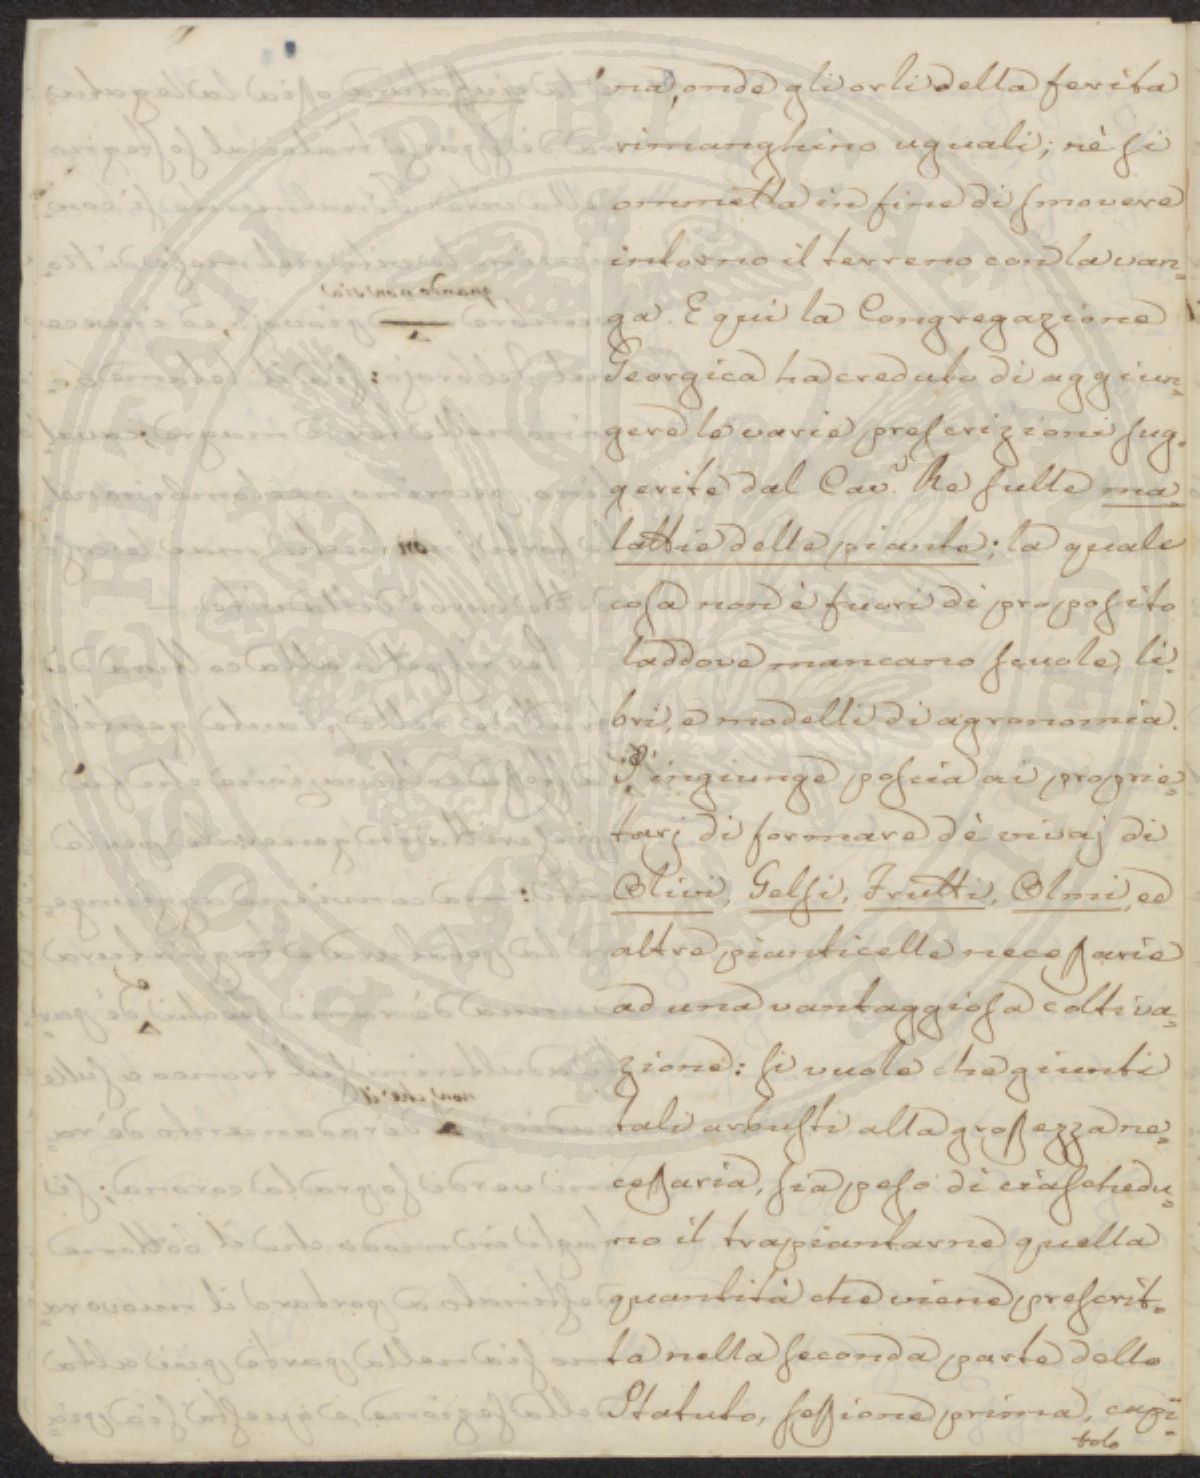 na, onde gli orli della ferita
rimanghino uguali; nè si
ommetta in fine di smovere
intorno il terreno con la van=
ga. E qui la Congregazione
Georgica ha creduto di aggiun=
gere le varie prescrizioni sug=
gerite dal Cav.r Re sulle ma=
lattie delle piante; la quale
cosa non è fuori di proposito
laddove mancano scuole, li=
bri, e modelli di agronomia.
S'ingiunge poscia ai proprie=
tarj di formare dè vivaj di
Olivi, Gelsi, Frutti, Olmi, ed
altre pianticelle necessarie
ad una vantaggiosa coltiva=
zione: si vuole che giunti
tali arbusti alla grossezza ne=
cessaria, sia peso di ciaschedu=
no il trapiantarne quella
quantità che viene prescrit=
ta nella seconda parte dello
Statuto, sessione prima, capi=
tolo